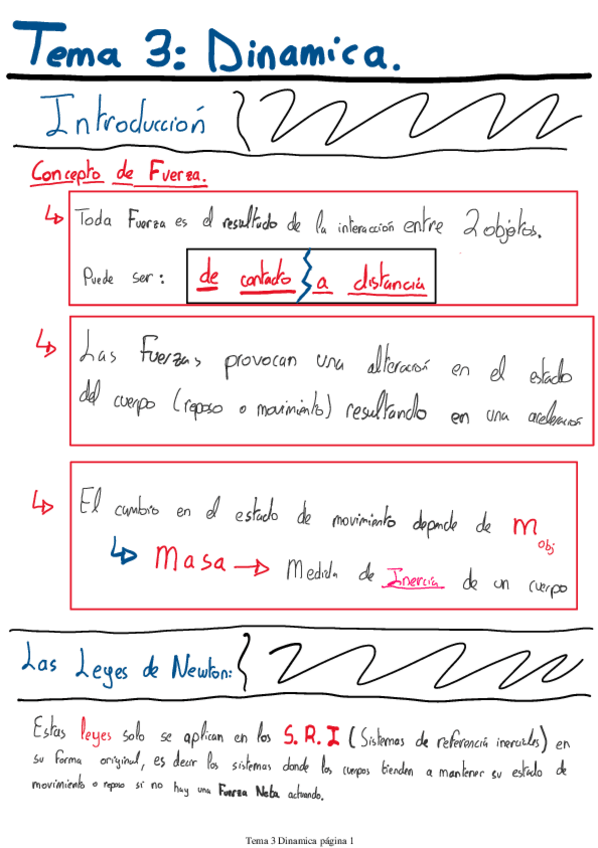 Tema 3: Dinamica.
Introducción
Concepto de Fuerza.
Toda Fuerza es el resultado de la interacción entre 2 objetos.
Puede ser: de contacto a distancia
Las Fuerzas provocan una alteración en el estado
del cuerpo (reposo o movimiento) resultando en una aceleración
El cambio en el estado de movimiento depende de m obj
Masa → Medida de Inercia de un cuerpo
Las Leyes de Newton:
Estas leyes solo se aplican en los S.R.I (Sistemas de referencia inerciales) en
su forma original, es decir los sistemas donde los cuerpos tienden a mantener su estado de
movimiento o reposo si no hay una Fuerza Neta actuando.
Tema 3 Dinamica página 1